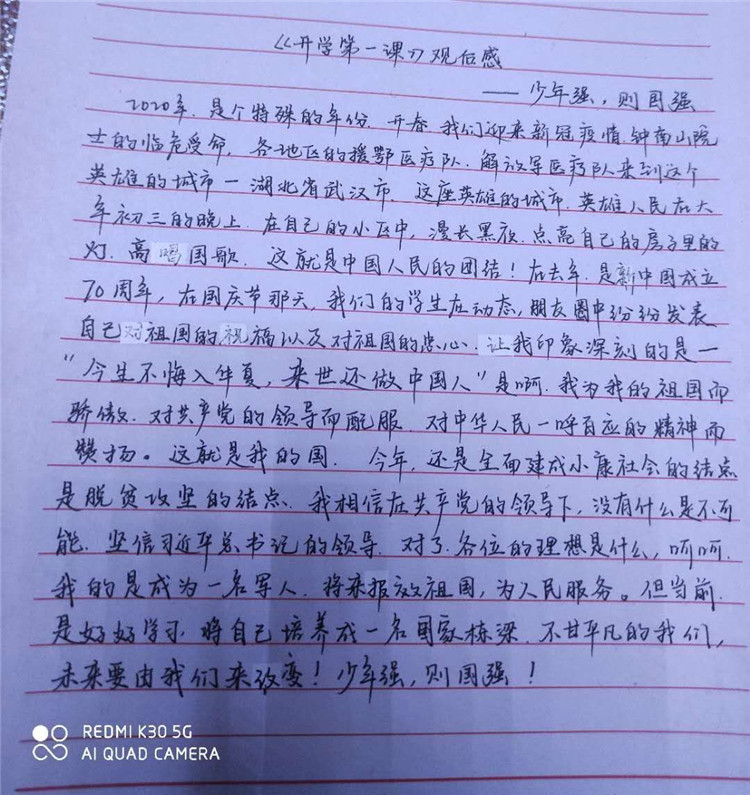 《开学第一课》观后感
——少年强,则国强
2020年.是个特殊的年份.开春.我们迎来新冠疫情.钟南山院
士的临危受命,各地区的援鄂医疗队.解放军医疗队来到这个
英雄的城市-湖北省武汉市.这座英雄的城市.英雄人民在大
年初三的晚上.在自己的小区中,漫长黑夜.点亮自己的房子里的
灯.高唱国歌.这就是中国人民的团结!在去年.是新中国成立
70周年,在国庆节那天,我们的学生在动态,朋友圈中纷纷发表
自己对祖国的祝福以及对祖国的忠心.让我印象深刻的是一
"今生不悔入华夏,来世还做中国人"是啊.我为我的祖国而
骄傲.对共产党的领导而配服.对中华人民一呼百应的精神而
赞扬。这就是我的国.今年,还是全面建成小康社会的结点
是脱贫攻坚的结点.我相信在共产党的领导下,没有什么是不可
能.坚信习近平总书记的领导.对了.各位的理想是什么,呵呵.
我的是成为一名军人.将来报效祖国,为人民服务。但当前.
是好好学习.将自己培养成一名国家栋梁.不甘平凡的我们,
未来要由我们来改变!少年强,则国强!
REDMI K30 5G
AI QUAD CAMERA